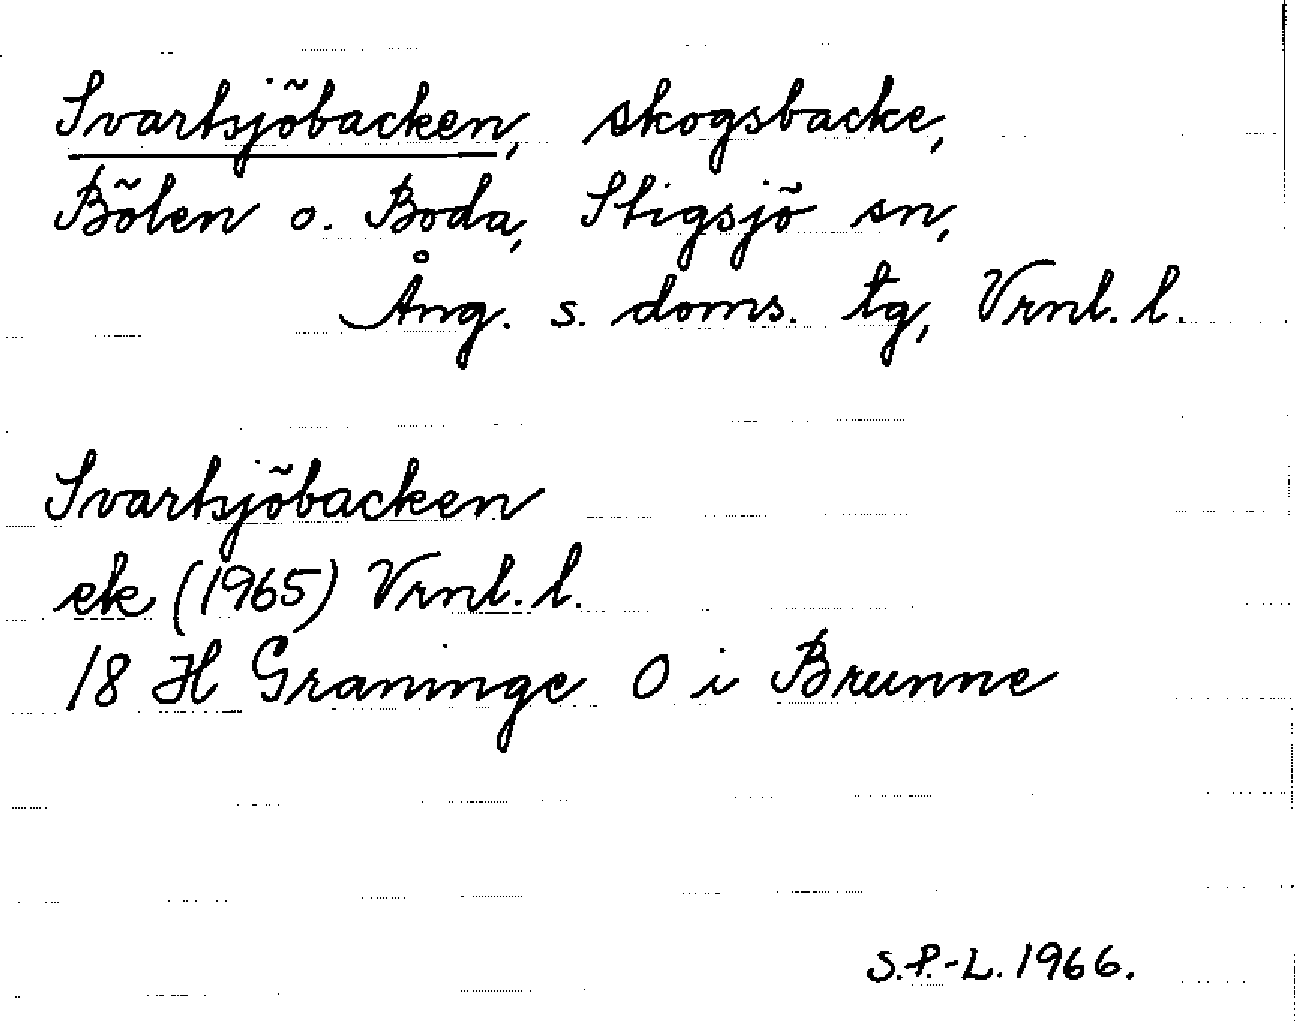 Svartsjöbacken, skogsbacke,
Bölen o. Boda, Stigsjö sn,
Ång. s. doms. tg, Vrnl. l.
Svartsjöbacken
ek (1965) Vrnl. l.
18 H Graninge O i Brunne
S.P.-L. 1966.